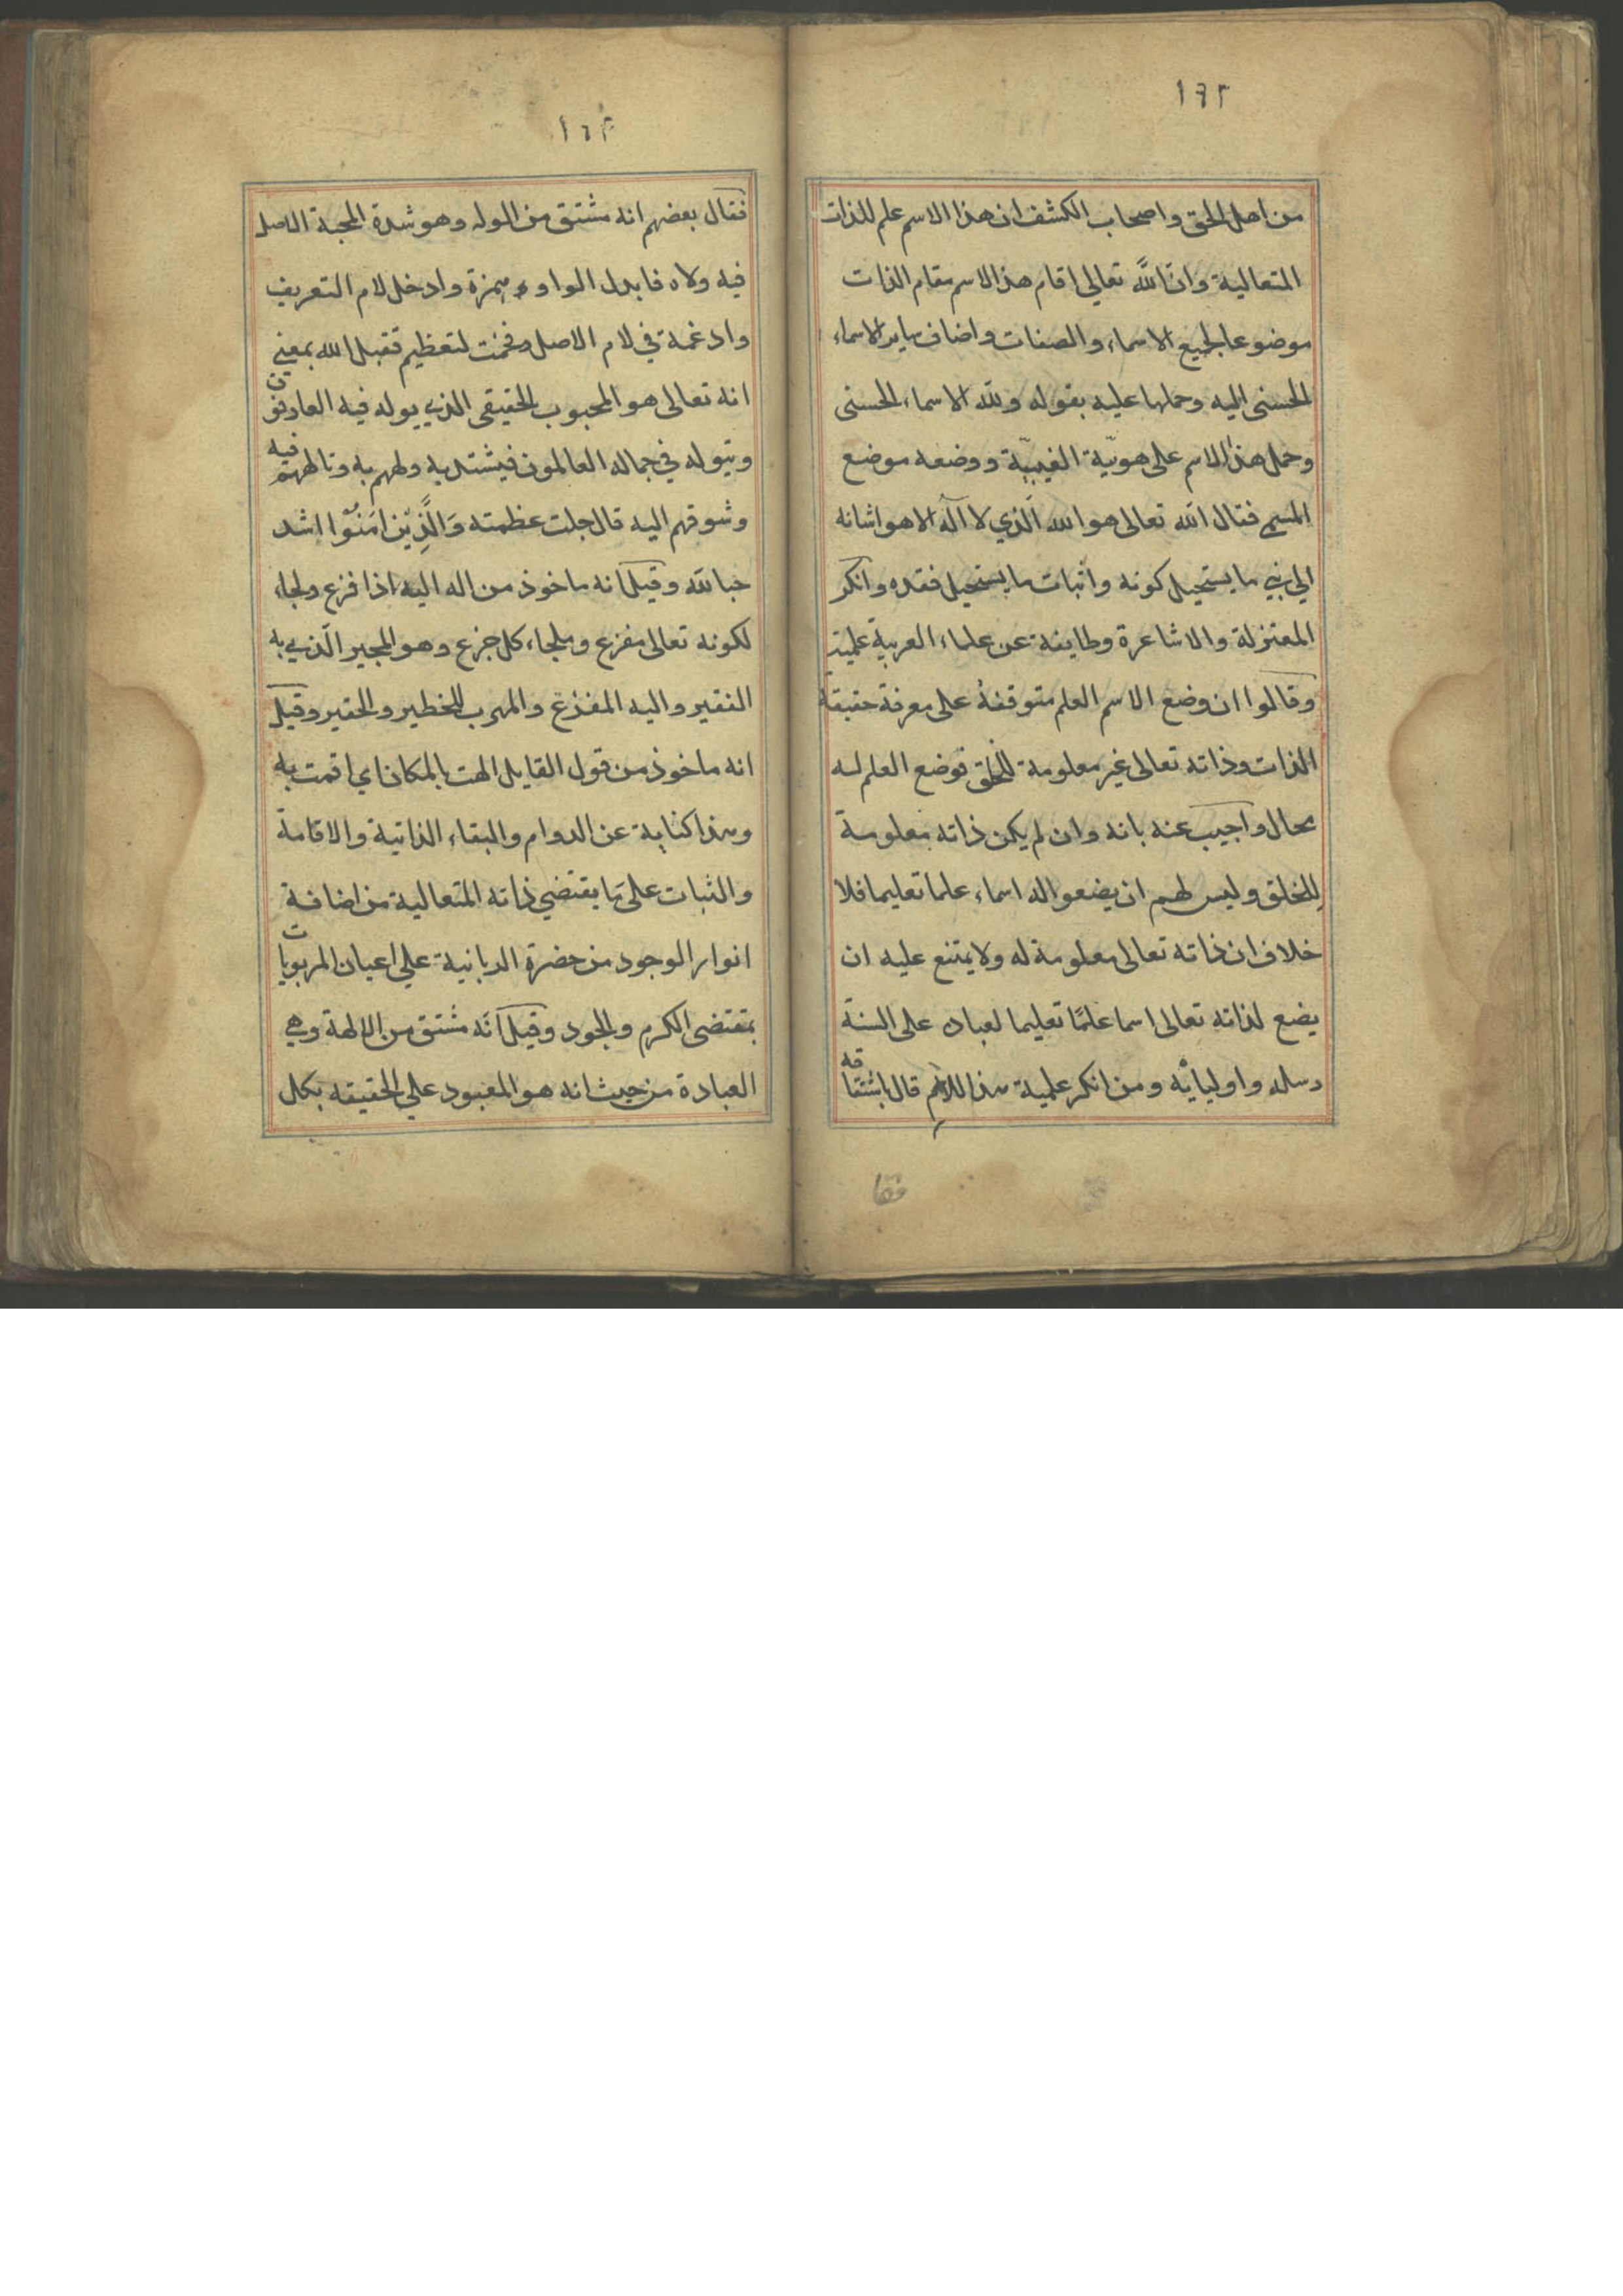 ١٦٢
من اهل الحق واصحاب الكشف ان هذا الاسم علم للذات
المتعالية وان اللّه تعالى اقام هذا الاسم مقام الذات
موضوعا لجميع الاسماء والصفات واضاف ساير الاسماء
الحسنى اليه وحملها عليه بقوله وللّه الاسماء الحسنى
وحمل هذا الاسم على هويّة الغيبيّة ووضعه موضع
المسمى فقال اللّه تعالى هو اللّه الّذي لا اله الا هو اشانه
الى نفي ما يستحيل كونه واثبات ما يستحيل فقده وانكر
المعتزلة والاشاعرة وطايفة عن علماء العربية علميته
وقالوا ان وضع الاسم العلم متوقفة على معرفة حقيقة
الذات وذاته تعالى غير معلومة للخلق فوضع العلم له
محال واجيب عنه بانه وان لم يكن ذاته معلومة
للخلق وليس لهم ان يضعوا له اسماء علما تعليما فلا
خلاف ان ذاته تعالى معلومة له ولا يمتنع عليه ان
يضع لذاته تعالى اسما علمًا تعليما لعباده على السنة
رسله واوليائه ومن انكر علمية هذا الاسم قال باشتقاقه
فقا
١٦٣
فقال بعضهم انه مشتق من الوله وهو شدة المحبة الاصل
فيه ولاه فابدل الواو همزة وادخل لام التعريف
وادغمه في لام الاصل وفخمت لتعظيم فقيل اللّه بمعنى
انه تعالى هو المحبوب الحقيقي الذي يوله فيه العارفون
ويتوله في جماله العالمون فيشتد به ولههم به وتالههم فيه
وشوقهم اليه قال جلت عظمته وَالَّذِيْنَ امَنُوْا اشد
حبا للّه وقيل انه ماخوذ من اله اليه اذا فزع ولجاء
لكونه تعالى مفزع وملجاء كل جزع وهو المجير الّذي به
الفقير واليه المفزع والمهرب للخطير والحقير وقيل
انه ماخوذ من قول القايل الهت بالمكان اي اقمت به
وهذا كناية عن الدوام والبقاء الذاتية والاقامة
والثبات على ما يقتضي ذاته المتعالية من اضافة
انوار الوجود من حضرة الربانية على اعيان المربوبات
بمقتضى الكرم والجود وقيل انّه مشتق من الالهة وهي
العبادة من حيث انه هو المعبود على الحقيقه بكل